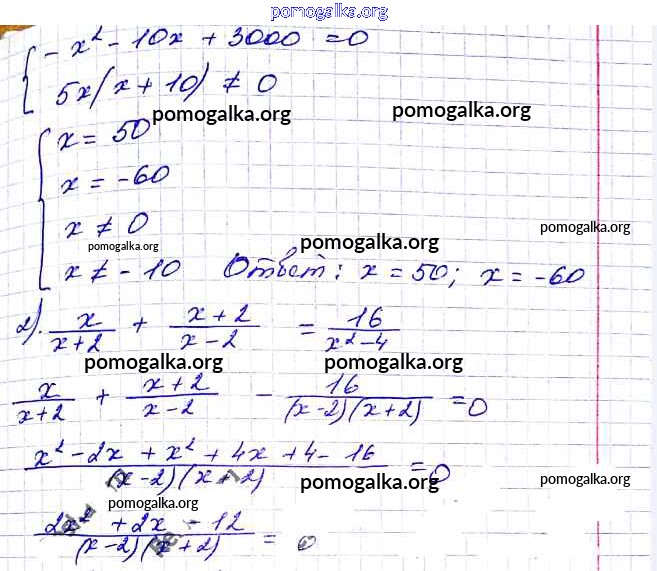 pomogalka.org
- x² - 10x + 3000 = 0
5x(x + 10) ≠ 0
pomogalka.org pomogalka.org
x = 50
x = -60
x ≠ 0
pomogalka.org pomogalka.org pomogalka.org
x ≠ -10 Ответ: x = 50; x = -60
2). x/(x+2) + (x+2)/(x-2) = 16/(x²-4)
pomogalka.org pomogalka.org
x/(x+2) + (x+2)/(x-2) - 16/((x-2)(x+2)) = 0
(x² - 2x + x² + 4x + 4 - 16)/((x-2)(x+2)) = 0
pomogalka.org pomogalka.org pomogalka.org
(2x² + 2x - 12)/((x-2)(x+2)) = 0